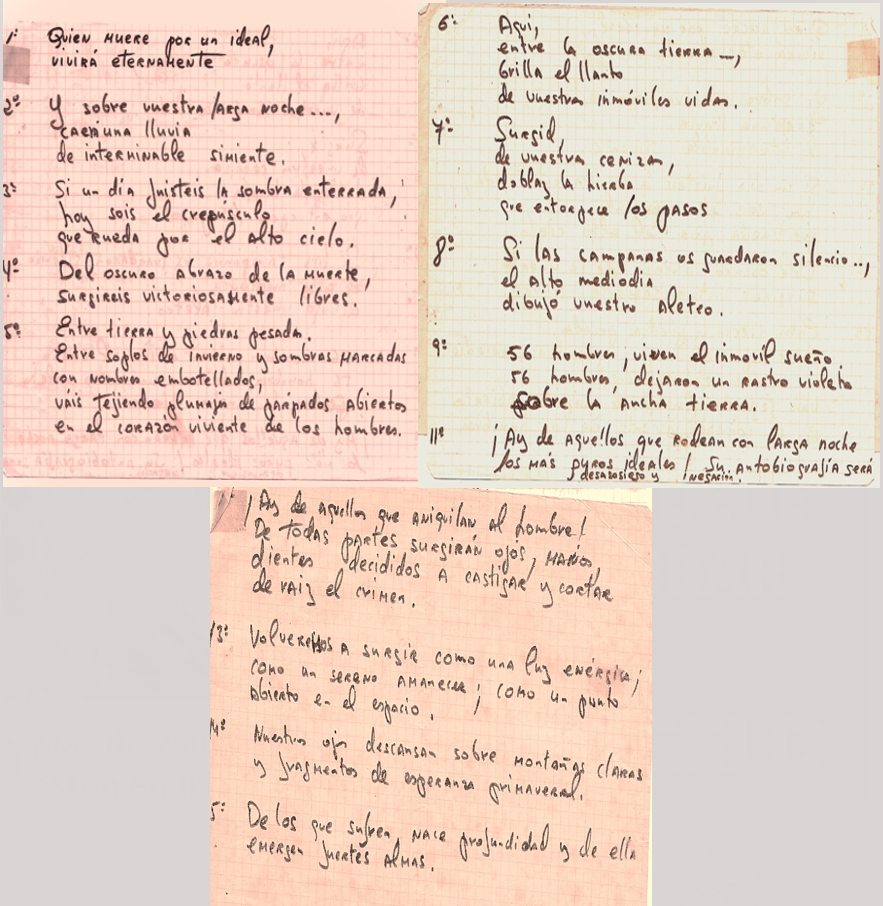 1º Quien muere por un ideal,
vivirá eternamente
2º Y sobre vuestra larga noche...,
caerá una lluvia
de interminable simiente.
3º Si un día fuisteis la sombra enterrada,
hoy sois el crepúsculo
que rueda por el alto cielo.
4º Del oscuro abrazo de la muerte,
surgireis victoriosamente libres.
5º Entre tierra y piedras pesada.
Entre soplos de invierno y sombras marcadas
con nombres embotellados,
váis tejiendo plumajes de párpados abiertos
en el corazón viviente de los hombres.
6º Aquí,
entre la oscura tierra —,
brilla el llanto
de vuestras inmóviles vidas.
7º Surgid,
de vuestra ceniza,
doblaz la hierba
que entorpece los pasos
8º Si las campanas os guardaron silencio..,
el alto mediodia
dibujó vuestro aleteo.
9º 56 hombres, viven el inmovil sueño
56 hombres, dejaron un rastro violeta
sobre la ancha tierra.
11º ¡Ay de aquellos que rodean con larga noche
los más puros ideales! Su autobiografía será
desasosiego y negación.
¡Ay de aquellos que aniquilan al hombre!
De todas partes surgirán ojos, manos,
dientes decididos a castigar y cortar
de raiz el crimen.
13º Volveremos a surgir como una luz enérgica;
como un sereno amanecer; como un punto
abierto en el espacio.
14º Nuestros ojos descansan sobre montañas claras
y fragmentos de esperanza primaveral.
5º De los que sufren, nace profundidad y de ella
emergen fuertes almas.